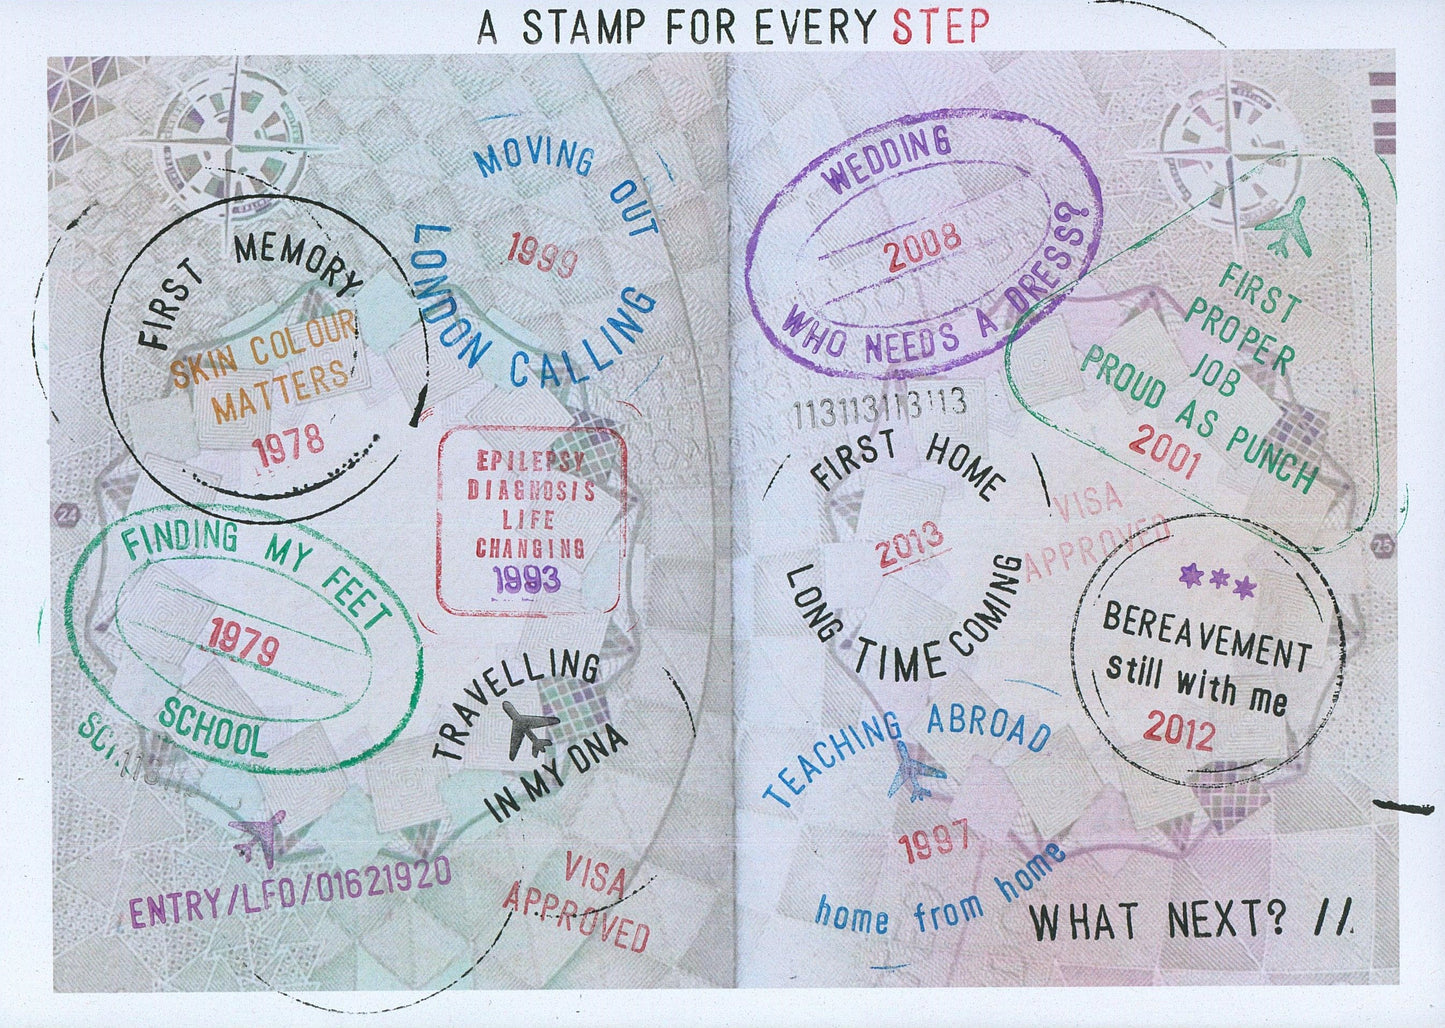 A STAMP FOR EVERY STEP
MOVING OUT
1999
LONDON CALLING
FIRST MEMORY
SKIN COLOUR
MATTERS
1978
EPILEPSY
DIAGNOSIS
LIFE
CHANGING
1993
24
FINDING MY FEET
1979
SCHOOL
TRAVELLING
IN MY DNA
ENTRY/LFO/01621920
VISA
APPROVED
WEDDING
2008
WHO NEEDS A DRESS?
FIRST
PROPER
JOB
PROUD AS PUNCH
2001
113113113113
FIRST HOME
2013
LONG TIME COMING
VISA
APPROVED
25
***
BEREAVEMENT
still with me
2012
TEACHING ABROAD
1997
home from home
WHAT NEXT? //